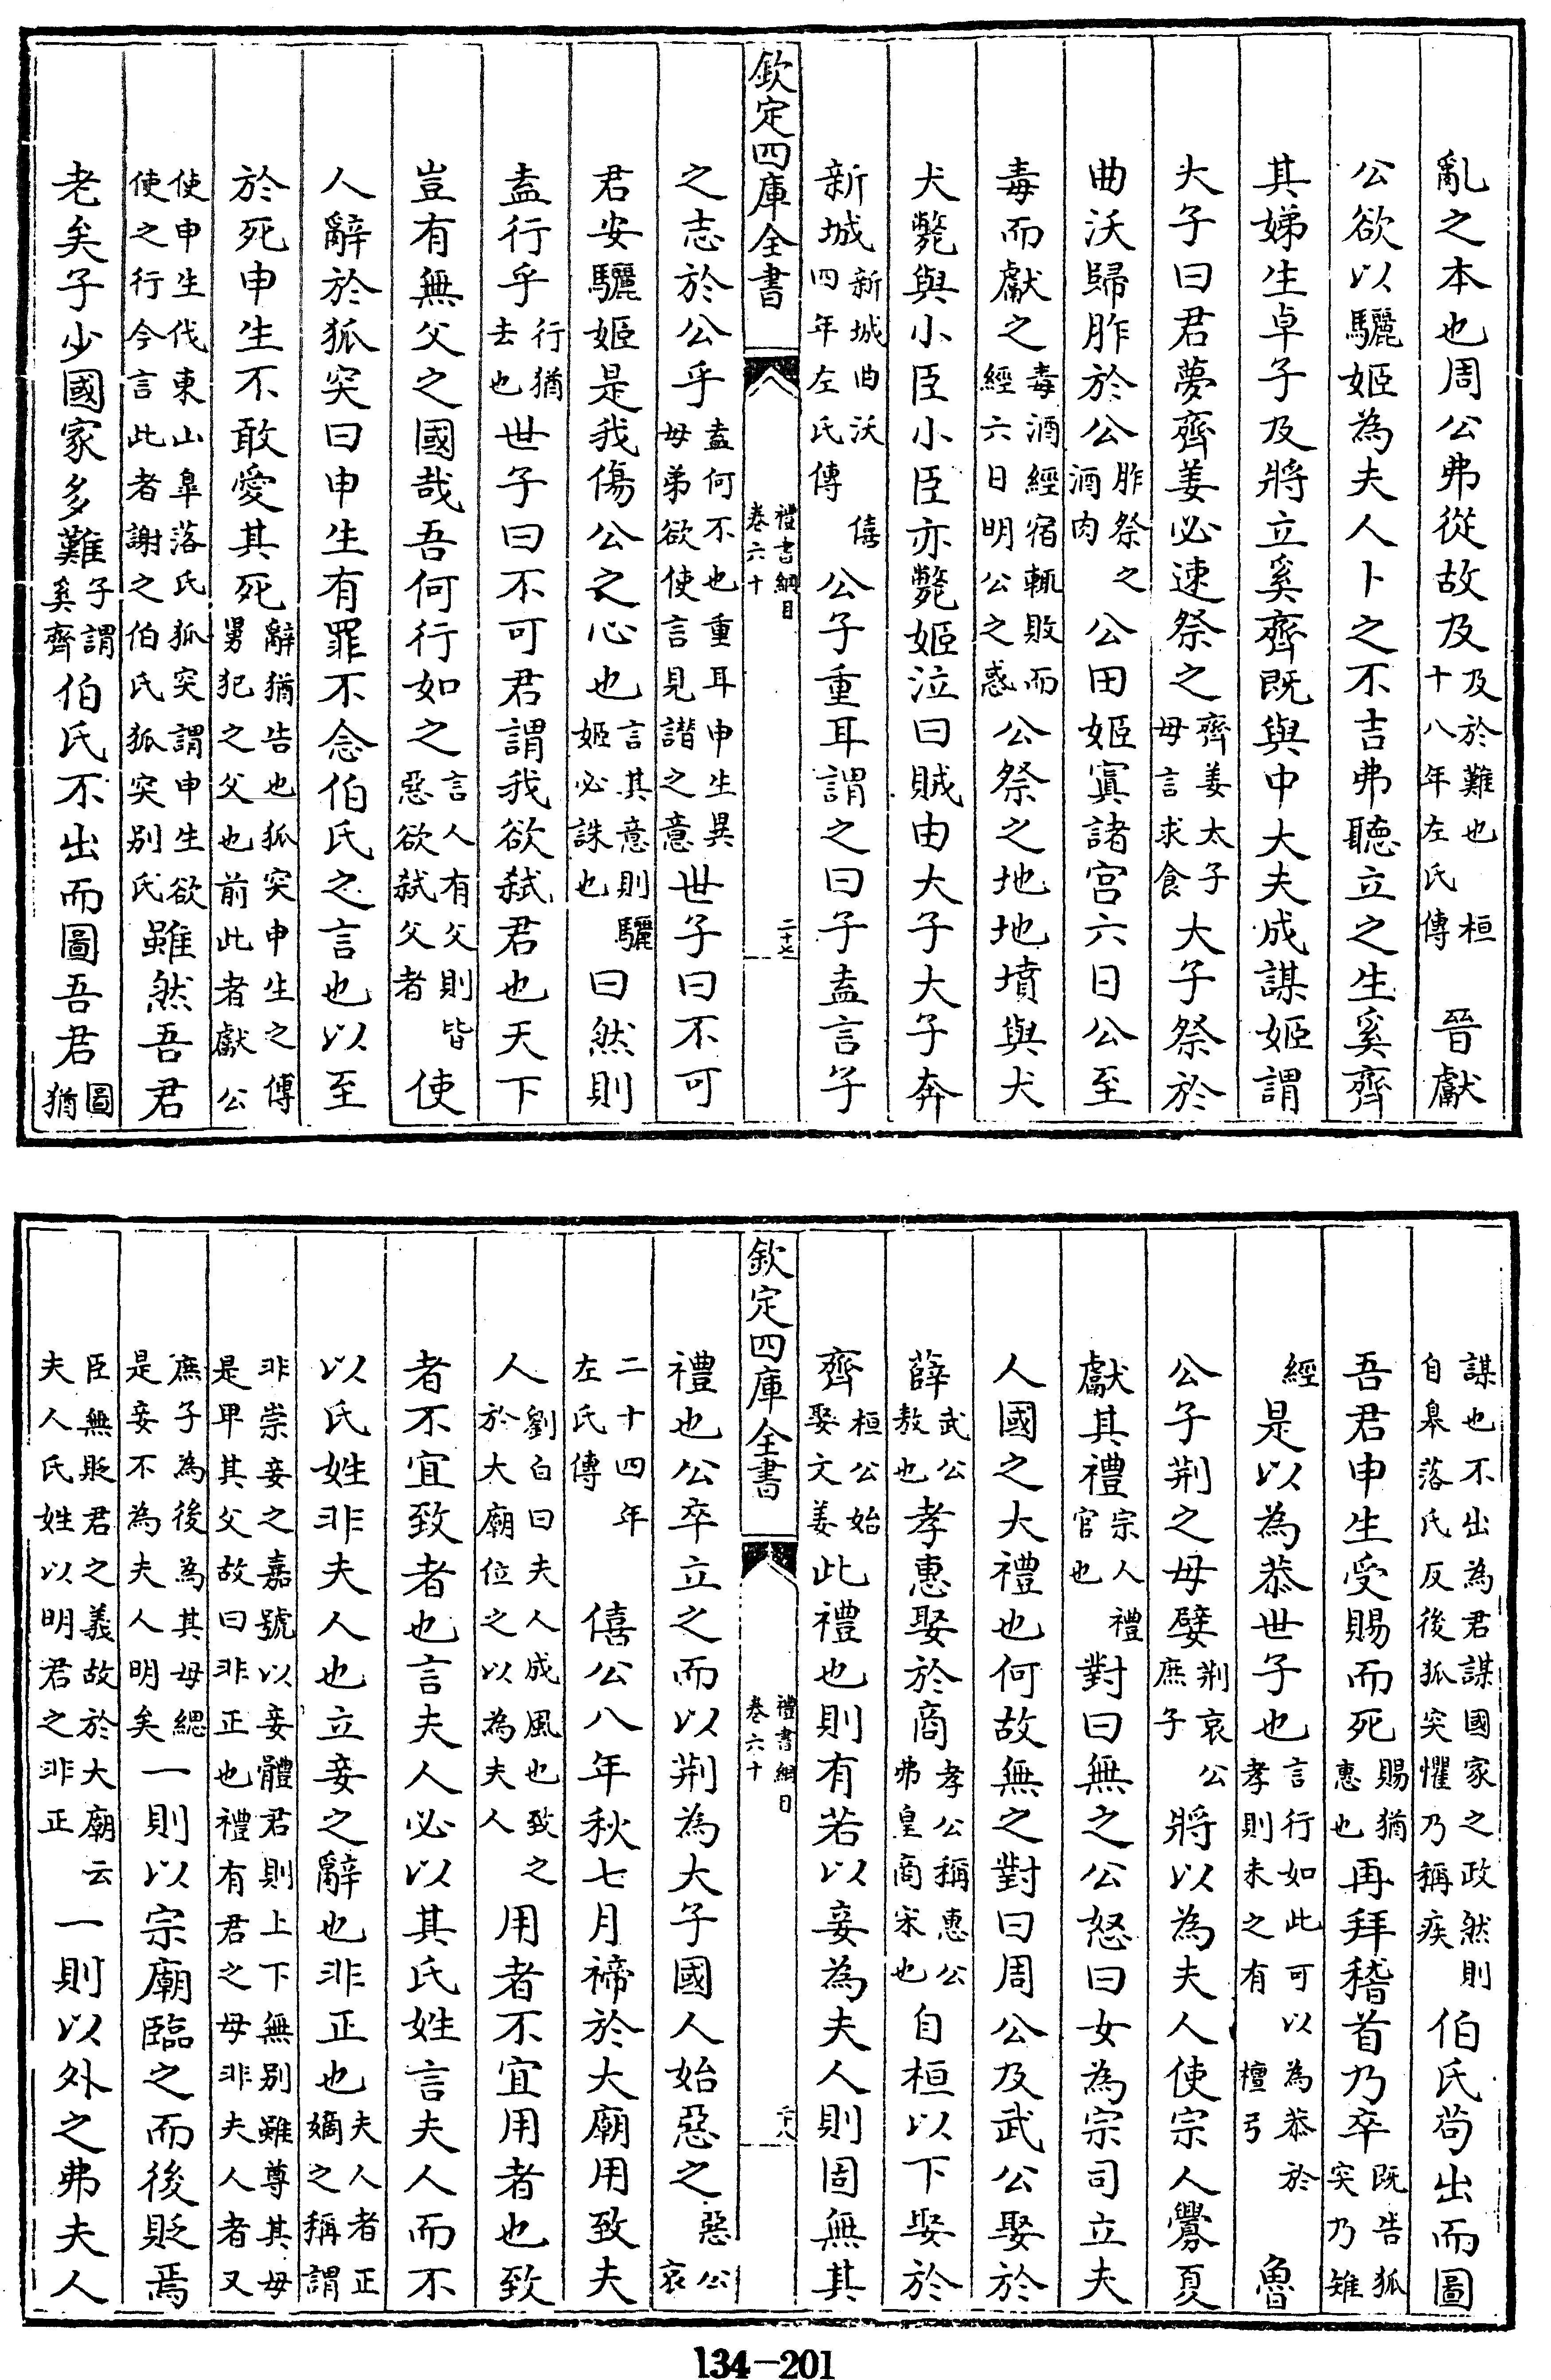 亂之本也周公弗從故及及於難也桓十八年左氏傳晉獻
公欲以驪姬為夫人卜之不吉弗聽立之生奚齊
其娣生卓子及將立奚齊既與中大夫成謀姬謂
大子曰君夢齊姜必速祭之齊姜太子母言求食大子祭於
曲沃歸胙於公胙祭之酒肉公田姬寘諸宮六日公至
毒而獻之毒酒經宿輒敗而經六日明公之惑公祭之地地墳與犬
犬斃與小臣小臣亦斃姬泣曰賊由大子大子奔
新城新城曲沃僖四年左氏傳公子重耳謂之曰子盍言子
欽定四庫全書
禮書綱目
卷六十
二十七
之志於公乎盍何不也重耳申生異母弟欲使言見譖之意世子曰不可
君安驪姬是我傷公之心也言其意則驪姬必誅也曰然則
盍行乎行猶去也世子曰不可君謂我欲弒君也天下
豈有無父之國哉吾何行如之言人有父則皆惡欲弒父者使
人辭於狐突曰申生有罪不念伯氏之言也以至
於死申生不敢愛其死辭猶告也狐突申生之傅舅犯之父也前此者獻公
使申生伐東山皋落氏狐突謂申生欲使之行今言此者謝之伯氏狐突別氏雖然吾君
老矣子少國家多難子謂奚齊伯氏不出而圖吾君圖猶
謀也不出為君謀國家之政然則自皋落氏反後狐突懼乃稱疾伯氏茍出而圖
吾君申生受賜而死賜猶惠也再拜稽首乃卒既告狐突乃雉
經是以為恭世子也言行如此可以為恭於孝則未之有檀弓魯
公子荆之母嬖荆哀公庶子將以為夫人使宗人釁夏
獻其禮宗人禮官也對曰無之公怒曰女為宗司立夫
人國之大禮也何故無之對曰周公及武公娶於
薛武公敖也孝惠娶於商孝公稱惠公弗皇商宋也自桓以下娶於
齊桓公始娶文姜此禮也則有若以妾為夫人則固無其
欽定四庫全書
禮書綱目
卷六十
二十八
禮也公卒立之而以荆為大子國人始惡之惡公哀
二十四年左氏傳僖公八年秋七月禘於大廟用致夫
人劉向曰夫人成風也致之於大廟位之以為夫人用者不宜用者也致
者不宜致者也言夫人必以其氏姓言夫人而不
以氏姓非夫人也立妾之辭也非正也夫人者正嫡之稱謂
非崇妾之嘉號以妾體君則上下無別雖尊其母是甲其父故曰非正也禮有君之母非夫人者又
庶子為後為其母緦是妾不為夫人明矣一則以宗廟臨之而後貶焉
臣無貶君之義故於大廟云夫人氏姓以明君之非正一則以外之弗夫人
134-201